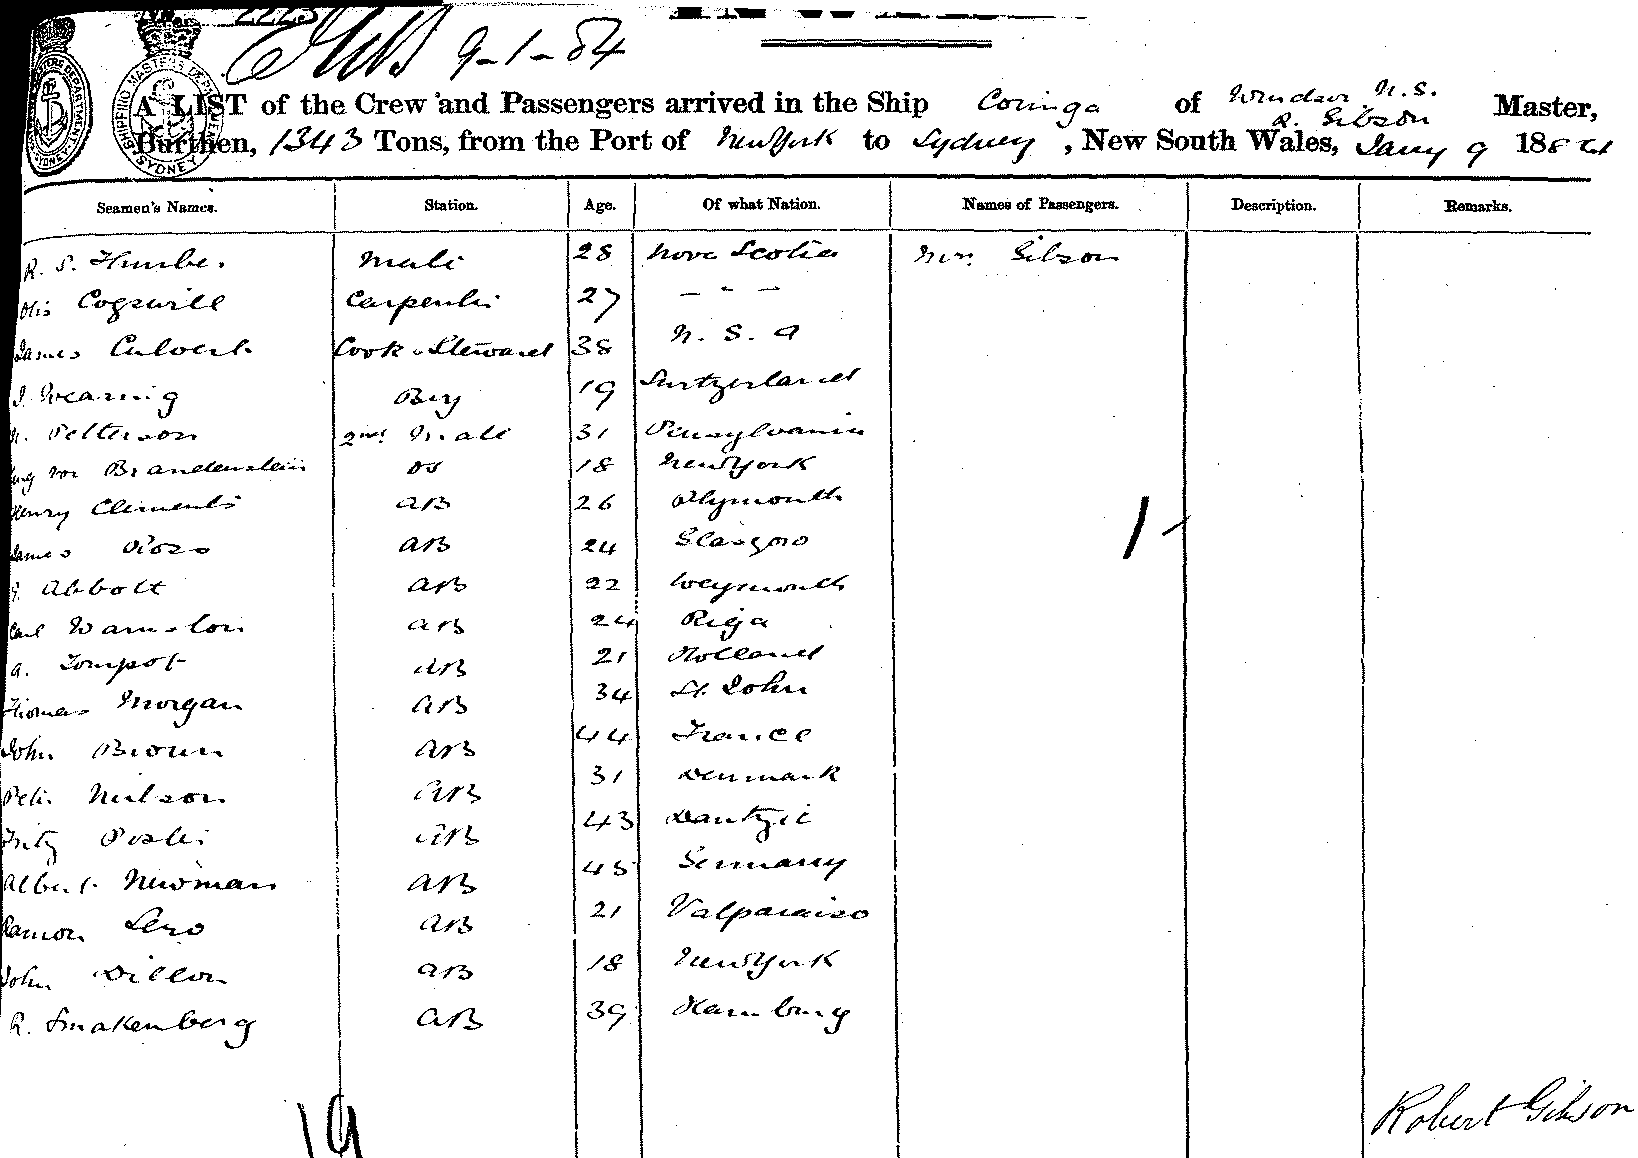 9-1-84
A LIST of the Crew and Passengers arrived in the Ship Coringa of Windsor N.S. R. Gibson Master,
Burthen, 1343 Tons, from the Port of New York to Sydney, New South Wales, Jany 9 1884
Seamen's Names. Station. Age. Of what Nation. Names of Passengers. Description. Remarks.
R. S. Mate 28 Nova Scotia Mrs. Gibson
Otis Cogswill Carpenter 27 - - -
James Culvert Cook & Steward 38 U. S. A
J. Wearing Boy 19 Switzerland
Petterson 2nd Mate 31 Pensylvania
von Brandenstein OS 18 New York
Henry Clements AB 26 Plymouth
James Ross AB 24 Glasgow
Abbott AB 22 Weymouth
Carl AB 24 Riga
A. Tompot AB 21 Holland
Thomas Morgan AB 34 St. John
John Brown AB 44 France
Peter Neilson AB 31 Denmark
Fritz AB 43 Dantzic
Albert Newman AB 45 Germany
Ramon Lero AB 21 Valparaiso
John Dillon AB 18 New York
R. Smakenberg AB 39 Hamburg
1
19
Robert Gibson